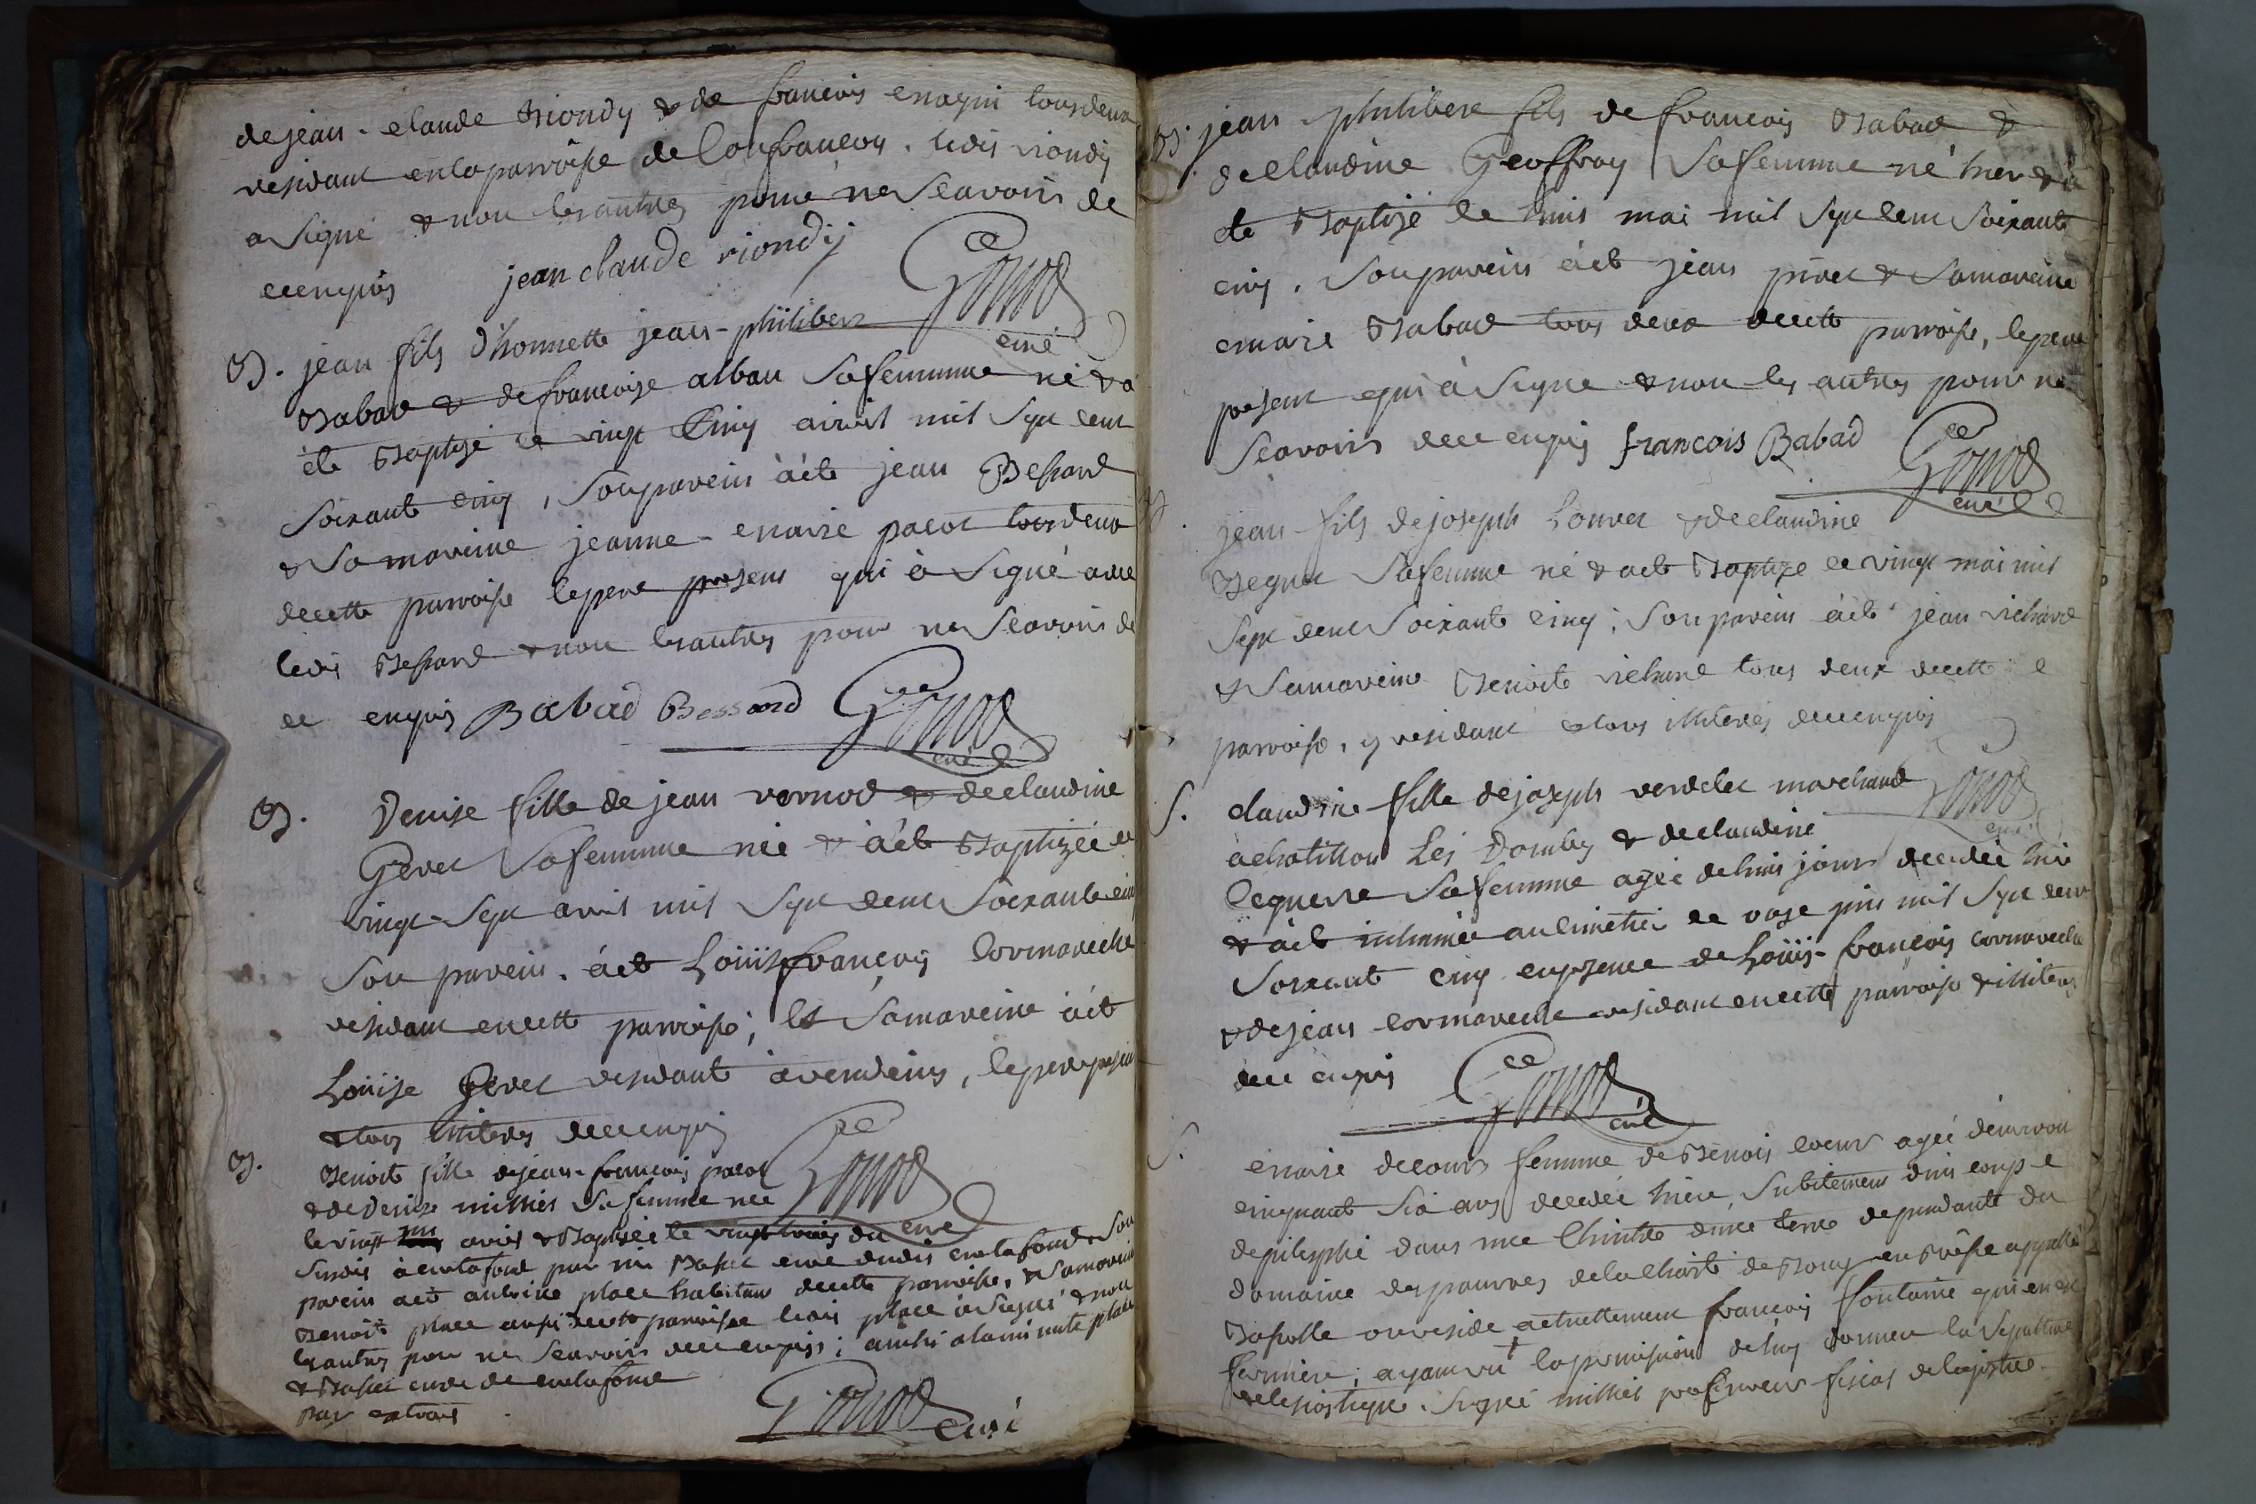 de jean-claude Riondy & de francois enaqui tous deux
residant en la parroisse de Confrancon. ledis riondy
a signé & non les autres pour ne scavoir de
ce enquis jean claude riondy
Gonod curé
B. jean fils d'honnette jean-philiber
Babad & de francoise alban sa femme né & a
été Baptizé le vingt cinq avril mil sept cent
soixante cinq, son parein a été jean Bessard
& sa mareine jeanne-marie pacot tous deux
de cette parroisse le pere presens qui a signé avec
ledis Bessard & non les autres pour ne scavoir de
ce enquis Babad Bessard Gonod
curé
B. Denise fille de jean vernod & de claudine
Geret sa femme née & a été Baptizée le
vingt-sept avril mil sept cent soixante cinq
son parein a été Loüis françois Cormareche
residant en cette parroisse, et sa mareine a été
Loüise Geret residant a vendeins, le pere present
& tous illiteres de ce enquis
B. Benoite fille de jean-francois pacot
Gonod
& de Denise millies sa femme née
curé
le vingt avril & Baptizée le vingt trois du
susdis a curtafond par mr curé dudis curtafond, son
parein a été antoine place habitans de cette parroisse, & sa mareine
Benoite place aussi de cette parroisse ledis place a signé & non
les autres pour ne scavoir de ce enquis; ainsi a la minute place
& curé de curtafond
par extrais
Gonod curé
B. jean philibere fils de francois Babad &
de claudine Geoffray sa femme né hier & a
été Baptizé le huis mai mil sept cent soixante
cinq, son parein a été jean & sa mareine
marie Babad tous deux de cette parroisse, le pere
present qui a signé & non les autres pour ne
scavoir de ce enquis francois Babad Gonod
curé
jean fils de joseph Louvet & de claudine
sa femme né & a été Baptizé le vingt mai mil
sept cent soixante cinq; son parein a été jean richard
& sa mareine Benoite richard tous deux de cette
parroisse, y residant & tous illiterés de ce enquis
Gonod
curé
S. claudine fille de joseph verdelet marchand
a chatillon Les Dombes & de claudine
lequerre sa femme agée de huis jours decedée hier
& a été inhumée au cimetier le onze juin mil sept cent
soixante cinq en presence de Loüis-françois cormareche
& de jean cormareche residant en cette parroisse & illiteres
de ce enquis Gonod
curé
S. marie decours femme de Benois coeur agée d'environ
cinquante six ans decedée hier, subitement d'un coup
depilepsie dans une d'une terre dependante du
domaine des pauvres de la charité de Bourg en Bresse appellé
ou reside actuellement francois fontaine qui en est
fermier; ayant vu + la permission de luy donner la sepulture
ecclesiastique. signé millies procureur fiscal de la justice